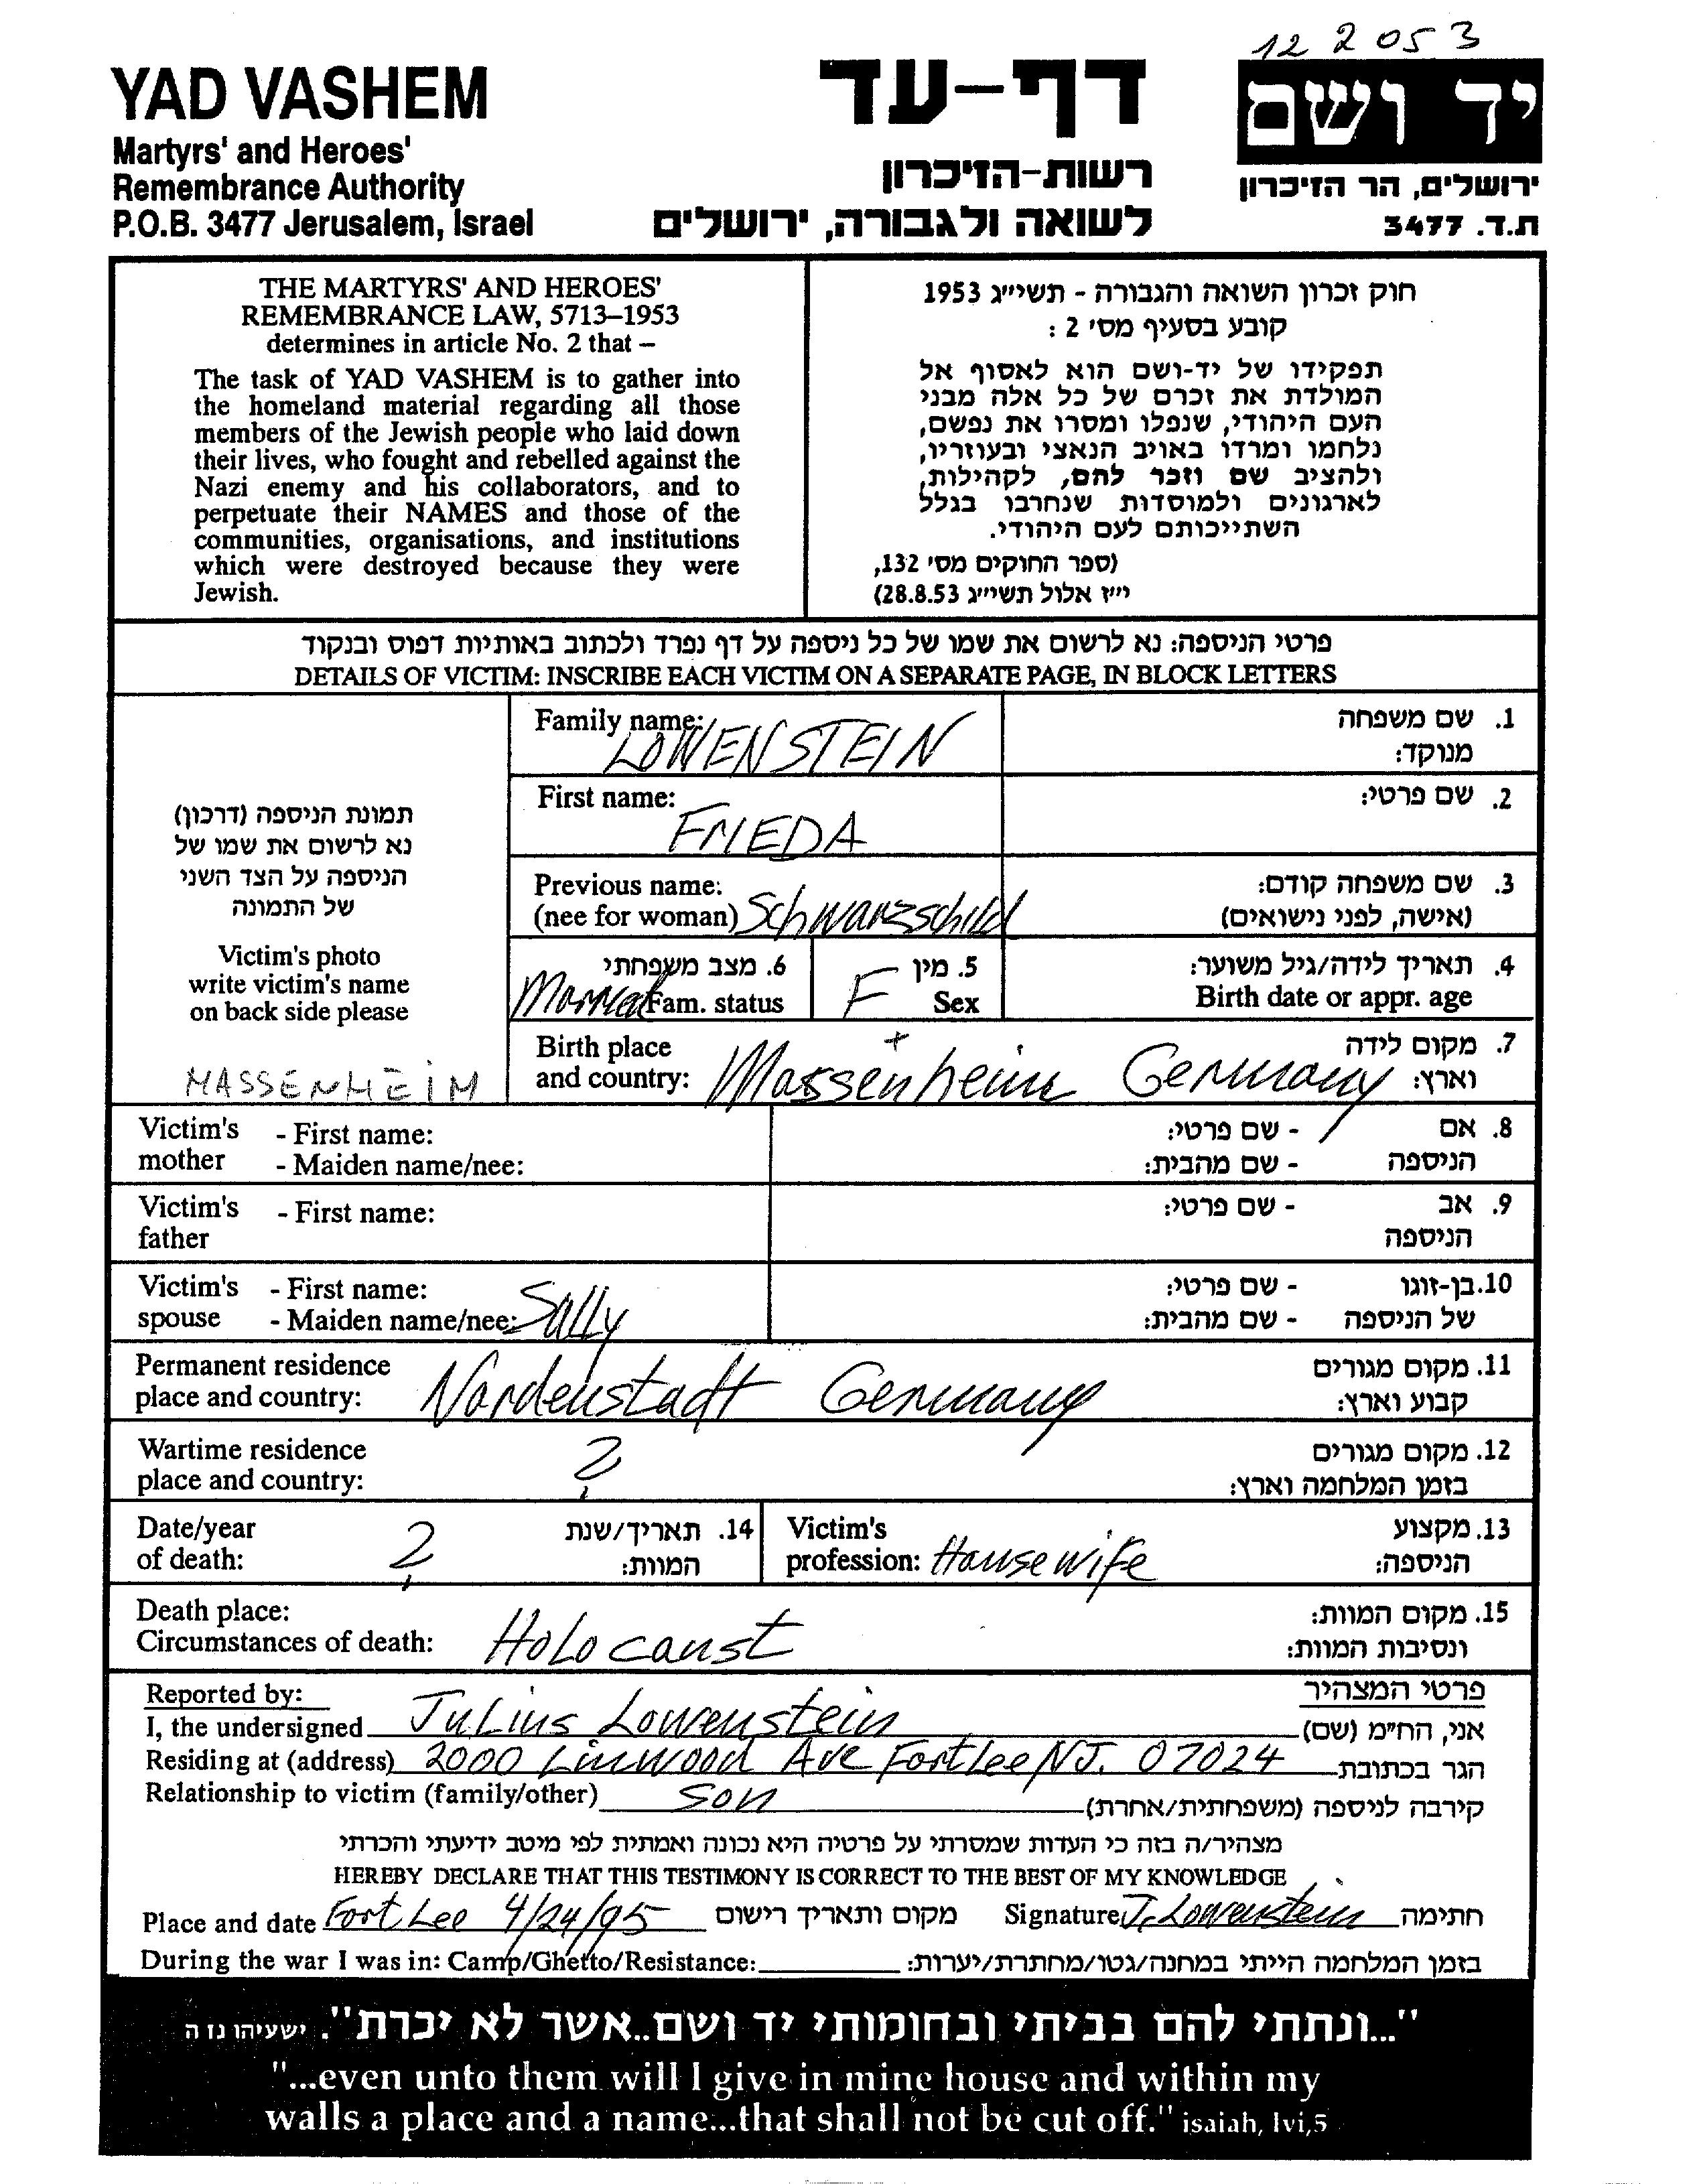 12 2 053
YAD VASHEM
Martyrs' and Heroes'
Remembrance Authority
P.O.B. 3477 Jerusalem, Israel
דף-עד
רשות-הזיכרון
לשואה ולגבורה, ירושלים
יד ושם
ירושלים, הר הזיכרון
ת.ד. 3477
THE MARTYRS' AND HEROES'
REMEMBRANCE LAW, 5713–1953
determines in article No. 2 that –
The task of YAD VASHEM is to gather into
the homeland material regarding all those
members of the Jewish people who laid down
their lives, who fought and rebelled against the
Nazi enemy and his collaborators, and to
perpetuate their NAMES and those of the
communities, organisations, and institutions
which were destroyed because they were
Jewish.
חוק זכרון השואה והגבורה - תשי״ג 1953
קובע בסעיף מס׳ 2 :
תפקידו של יד-ושם הוא לאסוף אל
המולדת את זכרם של כל אלה מבני
העם היהודי, שנפלו ומסרו את נפשם,
נלחמו ומרדו באויב הנאצי ובעוזריו,
ולהציב שם וזכר להם, לקהילות,
לארגונים ולמוסדות שנחרבו בגלל
השתייכותם לעם היהודי.
(ספר החוקים מס׳ 132,
י״ז אלול תשי״ג 28.8.53)
פרטי הניספה: נא לרשום את שמו של כל ניספה על דף נפרד ולכתוב באותיות דפוס ובנקוד
DETAILS OF VICTIM: INSCRIBE EACH VICTIM ON A SEPARATE PAGE, IN BLOCK LETTERS
תמונת הניספה (דרכון)
נא לרשום את שמו של
הניספה על הצד השני
של התמונה
Victim's photo
write victim's name
on back side please
MASSENHEIM
Family name: LOWENSTEIN 1. שם משפחה
מנוקד:
First name: FRIEDA 2. שם פרטי:
Previous name: 3. שם משפחה קודם:
(nee for woman) Schwarzschild (אישה, לפני נישואים)
6. מצב משפחתי 5. מין 4. תאריך לידה/גיל משוער:
Married Fam. status F Sex Birth date or appr. age
Birth place 7. מקום לידה
and country: Massenheim Germany וארץ:
Victim's - First name: - שם פרטי: 8. אם
mother - Maiden name/nee: - שם מהבית: הניספה
Victim's - First name: - שם פרטי: 9. אב
father הניספה
Victim's - First name: - שם פרטי: 10. בן-זוגו
spouse - Maiden name/nee: Sally - שם מהבית: של הניספה
Permanent residence 11. מקום מגורים
place and country: Nordenstadt Germany קבוע וארץ:
Wartime residence 12. מקום מגורים
place and country: ? בזמן המלחמה וארץ:
Date/year 14. תאריך/שנת Victim's 13. מקצוע
of death: ? המוות: profession: Housewife הניספה:
Death place: 15. מקום המוות:
Circumstances of death: Holocaust ונסיבות המוות:
Reported by: פרטי המצהיר
I, the undersigned Julius Lowenstein אני, הח״מ (שם)
Residing at (address) 2000 Linwood Ave Fort Lee NJ. 07024 הגר בכתובת
Relationship to victim (family/other) Son קירבה לניספה (משפחתית/אחרת)
מצהיר/ה בזה כי העדות שמסרתי על פרטיה היא נכונה ואמתית לפי מיטב ידיעתי והכרתי
HEREBY DECLARE THAT THIS TESTIMONY IS CORRECT TO THE BEST OF MY KNOWLEDGE
Place and date Fort Lee 4/24/95 מקום ותאריך רישום Signature J. Lowenstein חתימה
During the war I was in: Camp/Ghetto/Resistance: בזמן המלחמה הייתי במחנה/גטו/מחתרת/יערות:
"...ונתתי להם בביתי ובחומותי יד ושם..אשר לא יכרת". ישעיהו נו ה
"...even unto them will I give in mine house and within my
walls a place and a name...that shall not be cut off." isaiah, lvi,5